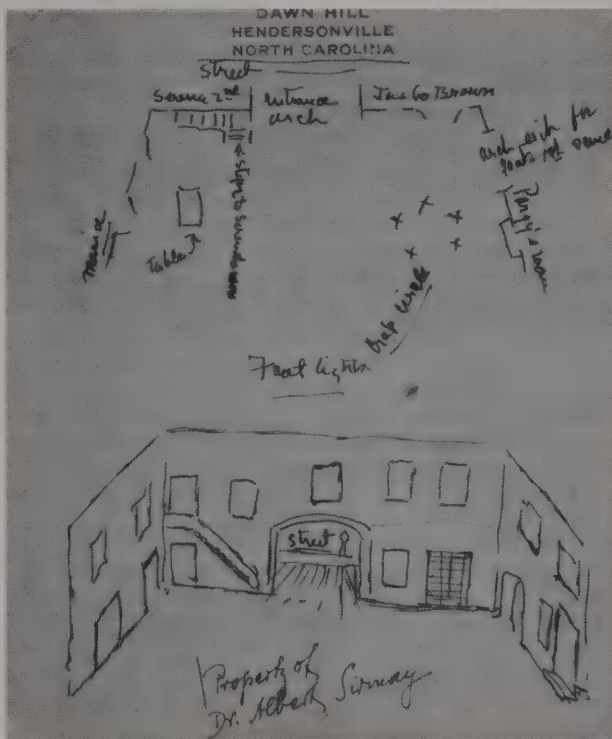 DAWN HILL
HENDERSONVILLE
NORTH CAROLINA
street
Serena 2nd
entrance
arch
Jasbo Brown
arch with for
goats 1st scene
Maria
Table
steps to Serena's room
Porgy's room
crap circle
Foot lights
street
Property of
Dr. Albert Sirmay